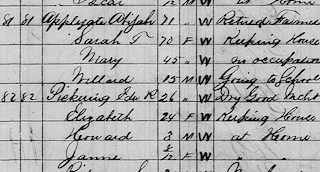 Oscar " 1/2 M W at Home
81 81 Applegate Abijah 71 " W Retired Farmer
Sarah T 70 F W Keeping House
Mary 45 " W no occupation
Willard 15 M W Going to School
82 82 Pickering Edw R 26 " W Dry Good Mcht
Elizabeth 24 F W Keeping House
Howard 3 M W at Home
Jannie /12 F W " "